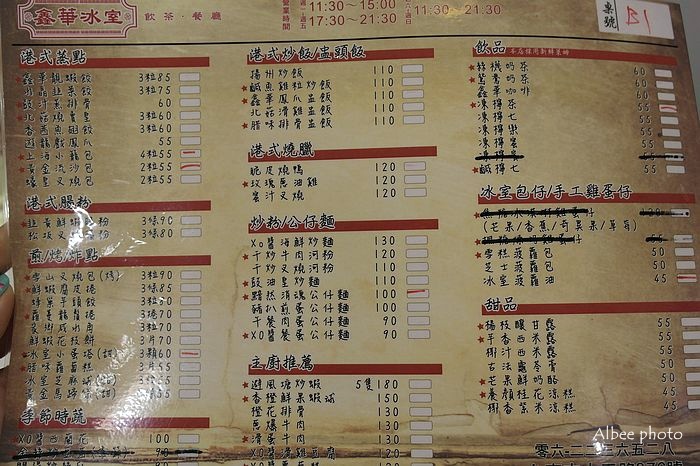 鑫華冰室
飲茶·餐廳
營業時間
11:30~15:00
17:30~21:30
11:30~21:30
桌號
B1
港式蒸點
鑫華靚蝦餃 3粒85
水晶韭菜餃 3粒75
豉汁蒸排骨 60
3粒60
3粒60
豉汁蒸鳳爪 55
上海小籠包 4粒55
黃金流沙包 2粒55
蠔皇叉燒包 2粒60
港式腸粉
韭黃鮮蝦腸粉 3條90
松坂叉燒腸粉 3條80
煎/烤/炸點
雪山叉燒包(烤) 3粒90
鮮蝦腐皮捲 3條85
蜂巢芋頭餃 3粒90
3捲70
家鄉咸水角 3粒60
鮮蝦花枝餅 3片90
冰室小蛋塔(甜) 3顆60
腊味蘿蔔糕 3片55
季節時蔬
XO醬西蘭花 100
港式炒飯/盅頭飯
揚州炒飯 110
鹹魚雞粒炒飯 110
鑫華鳳爪盅飯 110
北菇滑雞盅飯 110
腊味排骨盅飯 110
港式燒臘
脆皮燒鴨 120
玫瑰蔥油雞 120
蜜汁叉燒 120
炒粉/公仔麵
XO醬海鮮炒麵 130
干炒牛肉河粉 120
干炒叉燒河粉 110
豉油皇炒麵 110
黯然消魂公仔麵 100
豬扒煎蛋公仔麵 110
干餐肉蛋公仔麵 90
XO醬餐蛋公仔麵 90
主廚推薦
避風塘炒蝦 5隻180
香橙鮮果蝦球 150
橙花排骨 130
蔥爆牛肉 130
滑蛋牛肉 130
XO醬海鮮豆腐 120
飲品
本店採用新鮮萊姆
絲襪奶茶 60
鴛鴦奶茶 60
鑫華咖啡 60
凍檸茶 55
凍檸七 55
凍檸樂 55
凍檸蜜 55
鹹檸七 55
冰室包仔/手工雞蛋仔
130
(芒果/香蕉/奇異果/草莓)
雪糕菠蘿包 50
芝士菠蘿包 50
冰室菠蘿油 45
甜品
楊枝甘露 55
芋香西米露 55
椰汁西米露 55
古法龜苓膏 55
芒果鮮奶酪 55
養顏桂花涼糕 45
椰香紫米涼糕 45
零六-二二三六五二八
Albee photo